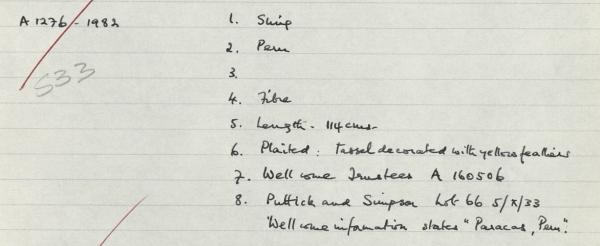 A 1276 - 1982
533
1. Sling
2. Peru
3.
4. Fibre
5. Length - 114 cms-
6. Plaited : tassel decorated with yellow feathers
7. Wellcome Trustees A 160506
8. Puttick and Simpson Lot 66 5/X/33
"Wellcome information states "Paracas, Peru".